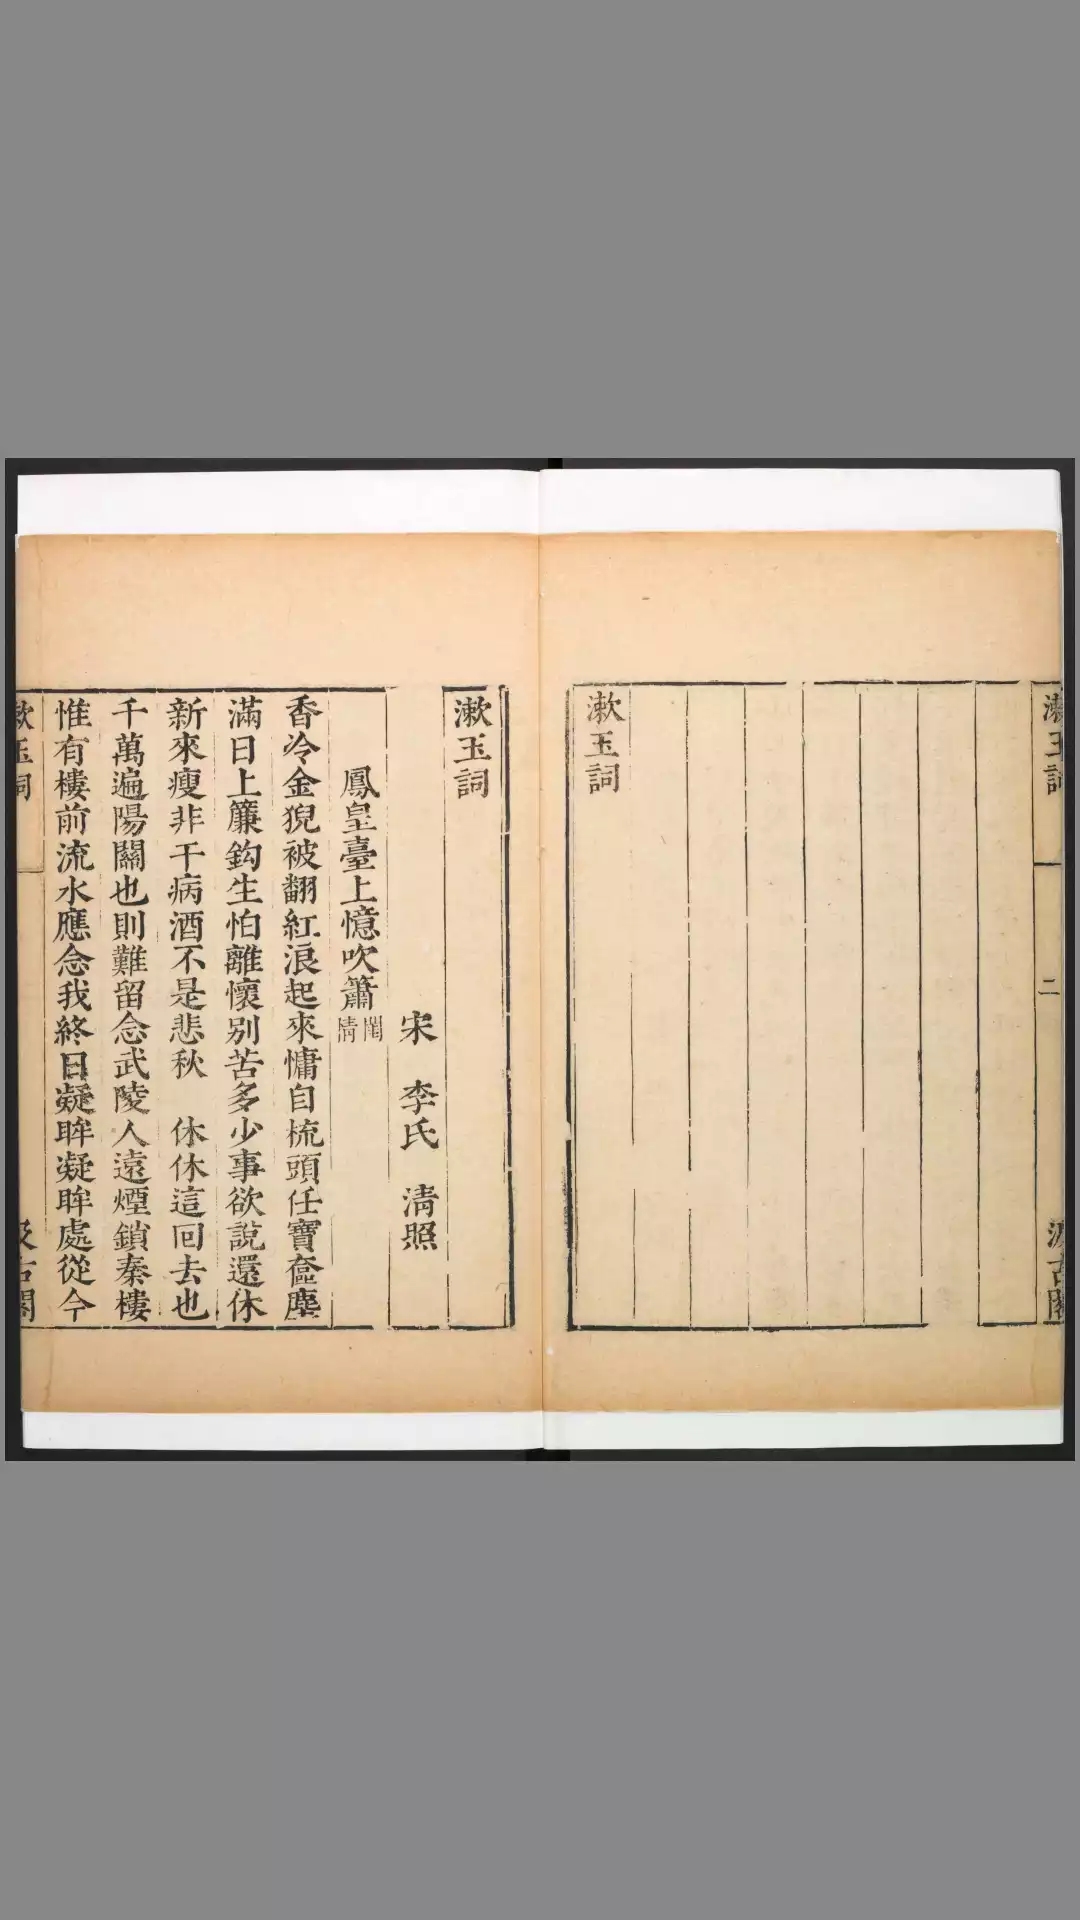 漱玉詞
二
汲古閣
漱玉詞
漱玉詞
宋 李氏 清照
鳳皇臺上憶吹簫 閨情
香冷金猊被翻紅浪起來慵自梳頭任寶奩塵
滿日上簾鈎生怕離懷别苦多少事欲說還休
新來瘦非干病酒不是悲秋 休休這回去也
千萬遍陽關也則難留念武陵人遠煙鎖秦樓
惟有樓前流水應念我終日凝眸凝眸處從今
漱玉詞
汲古閣